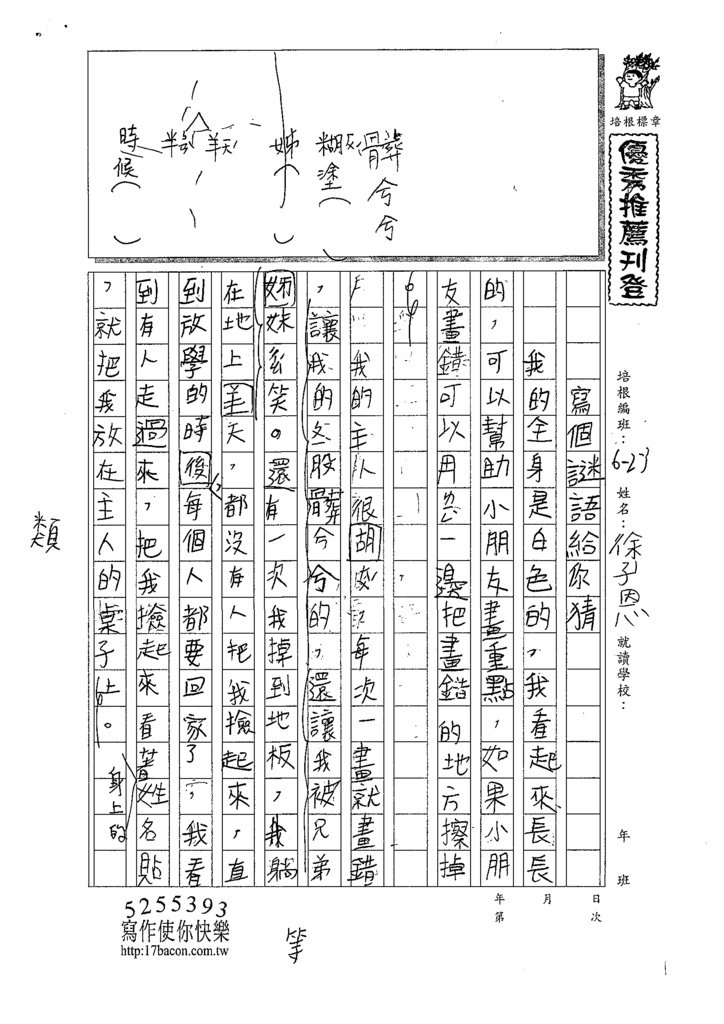 培根標章
優秀推薦刊登
培根編班：6-23 姓名：徐子恩 就讀學校： 年 班
日 月 年
次 第
寫個謎語給你猜
我的全身是白色的，我看起來長長
的，可以幫助小朋友畫重點，如果小朋
友畫錯可以用我一邊把畫錯的地方擦掉
我的主人很胡塗，每次一畫就畫錯
，讓我的屁股髒兮兮的，還讓我被兄弟
姊妹笑。還有一次我掉到地板，我躺
在地上半天，都沒有人把我撿起來，直
到放學的時後，每個人都要回家了，我看
到有人走過來，把我撿起來看著姓名貼
，就把我放在主人的桌子上。
身上的
髒兮兮
糊塗（ ）
姊（ ）
半天
時候（ ）
類
筆
5255393
寫作使你快樂
http:17bacon.com.tw